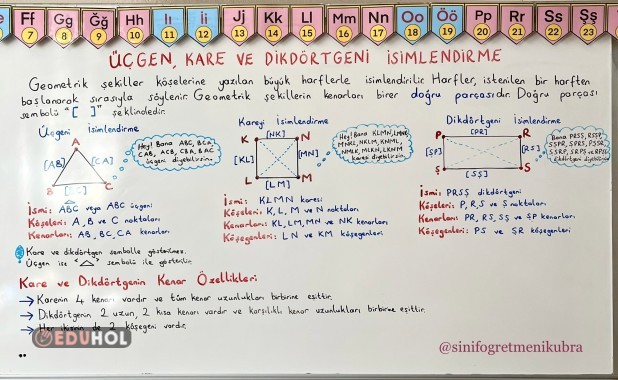 Ff Gg Ğğ Hh Iı İi Jj Kk Ll Mm Nn Oo Öö Pp Rr Ss Şş
7 8 9 10 11 12 13 14 15 16 17 18 19 20 21 22 23
ÜÇGEN, KARE VE DİKDÖRTGENİ İSİMLENDİRME
Geometrik şekiller köşelerine yazılan büyük harflerle isimlendirilir. Harfler, istenilen bir harften
başlanarak sırasıyla söylenir. Geometrik şekillerin kenarları birer doğru parçasıdır. Doğru parçası
sembolü "[ ]" şeklindedir.
Üçgeni İsimlendirme
A
[AB]
[CA]
B
C
Hey! Bana ABC, BCA,
CAB, ACB, CBA, BAC
üçgeni diyebilirsiniz
İsmi: ABC veya ABC üçgeni
Köşeleri: A, B ve C noktaları
Kenarları: AB, BC, CA kenarları
Kareyi İsimlendirme
[NK]
K
N
[KL]
[MN]
L
M
[LM]
Hey! Bana KLMN,
MNKL, NKLM, KNML,
NMLK, MLKN, LKNM
karesi diyebilirsin
İsmi: KLMN karesi
Köşeleri: K, L, M ve N noktaları
Kenarları: KL, LM, MN ve NK kenarları
Köşegenleri: LN ve KM köşegenleri
Dikdörtgeni İsimlendirme
[PR]
P
R
[ŞP]
[RS]
Ş
S
[SŞ]
İsmi: PRSŞ dikdörtgeni
Köşeleri: P, R, S ve Ş noktaları
Kenarları: PR, RS, SŞ ve ŞP kenarları
Köşegenleri: PS ve ŞR köşegenleri
Kare ve dikdörtgen sembolle gösterilmez.
Üçgen ise " " sembolü ile gösterilir.
Kare ve Dikdörtgenin Kenar Özellikleri
Karenin 4 kenarı vardır ve tüm kenar uzunlukları birbirine eşittir.
Dikdörtgenin 2 uzun, 2 kısa kenarı vardır ve karşılıklı kenar uzunlukları birbirine eşittir.
Her ikisinin de 2 köşegeni vardır.
EDUHOL
@sinifogretmenikubra